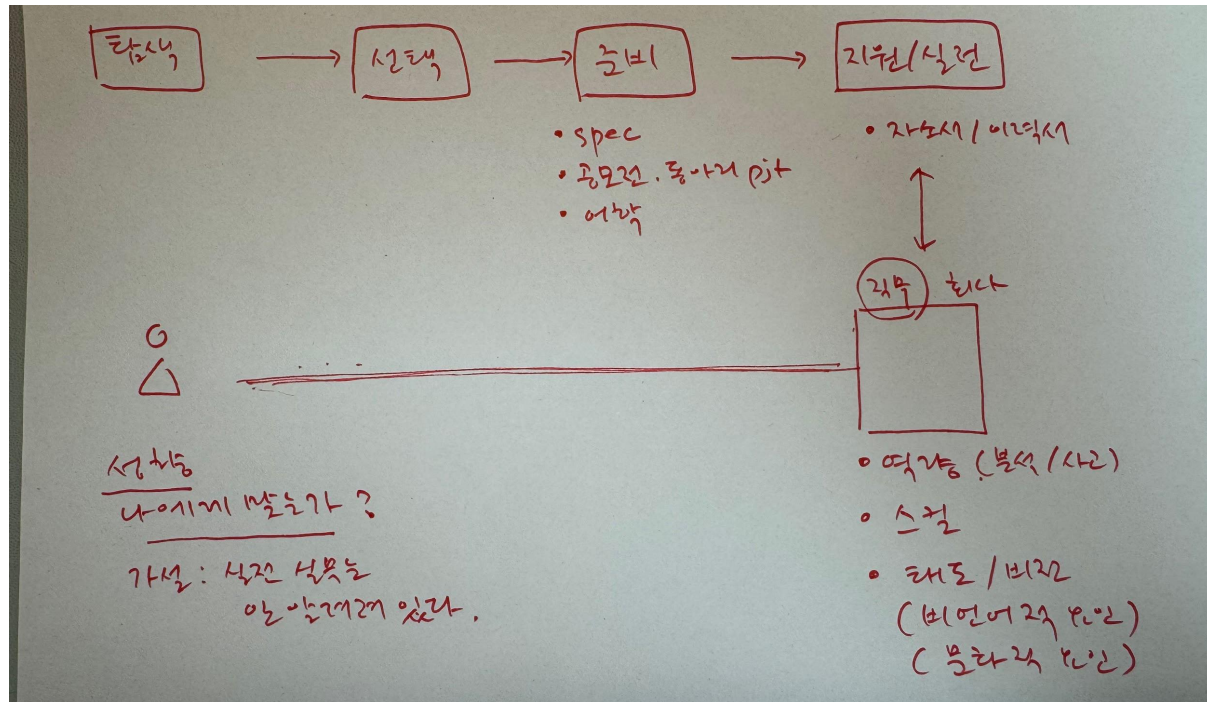 탐색 → 선택 → 준비 → 지원/실전
• spec
• 공모전. 동아리 pjt
• 어학
• 자소서/이력서
직무 회사
성취동
나에게 맞는가?
가설: 실전 실무는
안 알려져 있다.
• 역량 (분석/사고)
• 스킬
• 태도/비전
(비언어적 요인)
(문화적 요인)